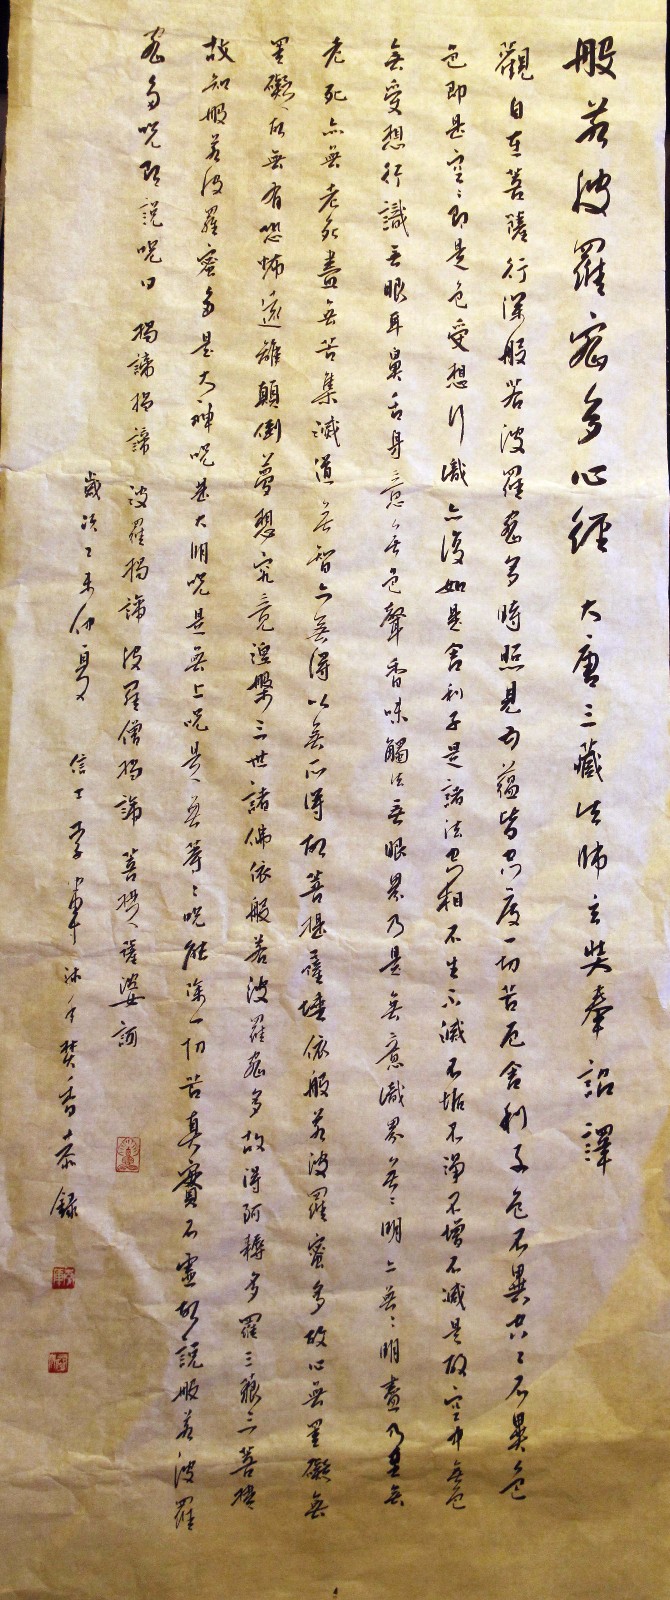 般若波羅蜜多心經 大唐三藏法師玄奘奉詔譯
觀自在菩薩行深般若波羅蜜多時照見五蘊皆空度一切苦厄舍利子色不異空〻不異色
色即是空〻即是色受想行識亦復如是舍利子是諸法空相不生不滅不垢不淨不增不減是故空中無色
無受想行識無眼耳鼻舌身意無色聲香味觸法無眼界乃至無意識界無〻明亦無〻明盡乃至無
老死亦無老死盡無苦集滅道無智亦無得以無所得故菩提薩埵依般若波羅蜜多故心無罣礙無
罣礙故無有恐怖遠離顛倒夢想究竟涅槃三世諸佛依般若波羅蜜多故得阿耨多羅三藐三菩提
故知般若波羅蜜多是大神咒是大明咒是無上咒是無等〻咒能除一切苦真實不虛故說般若波羅
蜜多咒即說咒曰 揭諦揭諦 波羅揭諦 波羅僧揭諦 菩提薩婆訶
歲次乙未仲夏 信士李軍沐手焚香恭錄